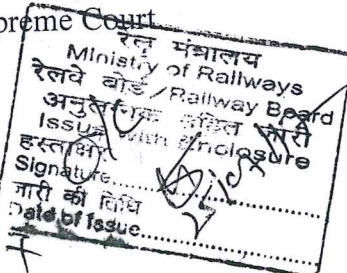 preme Court
रेल मंत्रालय
Ministry of Railways
रेलवे बोर्ड / Railway Board
अनुलग्नक सहित जारी
Issue with Enclosure
हस्ताक्षर
Signature..............................
जारी की तिथि
Date of Issue..............................